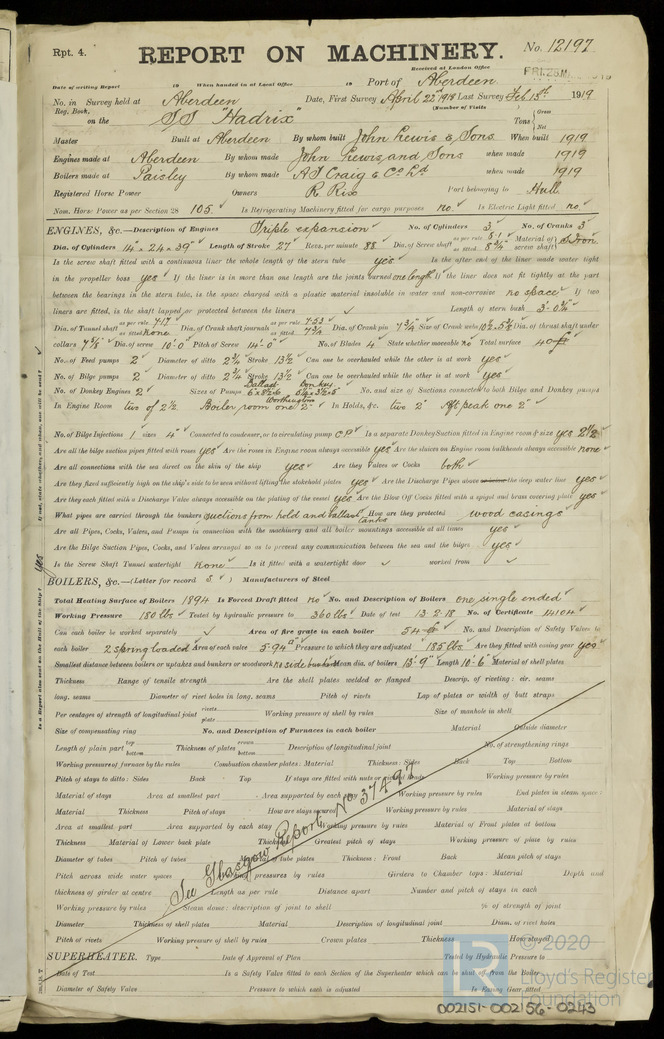 Rpt. 4.
REPORT ON MACHINERY. No. 12197
Received at London Office
Date of writing Report 19 When handed in at Local Office 19 Port of Aberdeen
No. in Survey held at Aberdeen Date, First Survey April 22nd 1918 Last Survey Feb 13th 1919
Reg. Book. (Number of Visits
on the S/S "Hadrix" Tons Gross Net
Master Built at Aberdeen By whom built John Lewis & Sons When built 1919
Engines made at Aberdeen By whom made John Lewis and Sons when made 1919
Boilers made at Paisley By whom made A F Craig & Co Ld when made 1919
Registered Horse Power Owners R. Rix Port belonging to Hull
Nom. Horse Power as per Section 28 105 Is Refrigerating Machinery fitted for cargo purposes no. Is Electric Light fitted no.
ENGINES, &c.—Description of Engines Triple expansion No. of Cylinders 3 No. of Cranks 3
Dia. of Cylinders 14" 24 x 39" Length of Stroke 27 Revs. per minute 88 Dia. of Screw shaft as per rule 8.1 as fitted 8 3/4 Material of screw shaft Iron
Is the screw shaft fitted with a continuous liner the whole length of the stern tube yes Is the after end of the liner made water tight
in the propeller boss yes If the liner is in more than one length are the joints burned one length If the liner does not fit tightly at the part
between the bearings in the stern tube, is the space charged with a plastic material insoluble in water and non-corrosive no space If two
liners are fitted, is the shaft lapped or protected between the liners Length of stern bush 3'-0 3/4"
Dia. of Tunnel shaft as per rule 7.17 as fitted none Dia. of Crank shaft journals as per rule 7.53 as fitted 7 3/4 Dia. of Crank pin 7 3/4 Size of Crank webs 10 1/2 x 5 1/2 Dia. of thrust shaft under
collars 7 7/8 Dia. of screw 10'-0" Pitch of Screw 14'-0" No. of Blades 4 State whether moveable no Total surface 40
No. of Feed pumps 2 Diameter of ditto 2 3/4 Stroke 13 1/2 Can one be overhauled while the other is at work yes
No. of Bilge pumps 2 Diameter of ditto 2 3/4 Stroke 13 1/2 Can one be overhauled while the other is at work yes
No. of Donkey Engines 2 Sizes of Pumps No. and size of Suctions connected to both Bilge and Donkey pumps
In Engine Room two of 2 1/2 Boiler room one 2" In Holds, &c. two 2" Aft peak one 2"
No. of Bilge Injections 1 sizes 4" Connected to condenser, or to circulating pump CP Is a separate Donkey Suction fitted in Engine room & size yes 2 1/2
Are all the bilge suction pipes fitted with roses yes Are the roses in Engine room always accessible yes Are the sluices on Engine room bulkheads always accessible none
Are all connections with the sea direct on the skin of the ship yes Are they Valves or Cocks both
Are they fixed sufficiently high on the ship's side to be seen without lifting the stokehold plates yes Are the Discharge Pipes above the deep water line yes
Are they each fitted with a Discharge Valve always accessible on the plating of the vessel yes Are the Blow Off Cocks fitted with a spigot and brass covering plate yes
What pipes are carried through the bunkers Suctions from hold and ballast tanks How are they protected wood casings
Are all Pipes, Cocks, Valves, and Pumps in connection with the machinery and all boiler mountings accessible at all times yes
Are the Bilge Suction Pipes, Cocks, and Valves arranged so as to prevent any communication between the sea and the bilges yes
Is the Screw Shaft Tunnel watertight none Is it fitted with a watertight door worked from
BOILERS, &c.—(Letter for record S) Manufacturers of Steel
Total Heating Surface of Boilers 1894 Is Forced Draft fitted no No. and Description of Boilers one single ended
Working Pressure 180 lbs Tested by hydraulic pressure to 360 lbs Date of test 13-2-18 No. of Certificate 14104
Can each boiler be worked separately Area of fire grate in each boiler 54 No. and Description of Safety Valves to
each boiler 2 spring loaded Area of each valve 5.94 Pressure to which they are adjusted 185 lbs Are they fitted with easing gear yes
Smallest distance between boilers or uptakes and bunkers or woodwork no side bunkers Mean dia. of boilers 13'-9" Length 10'-6" Material of shell plates
Thickness Range of tensile strength Are the shell plates welded or flanged Descrip. of riveting: cir. seams
long. seams Diameter of rivet holes in long. seams Pitch of rivets Lap of plates or width of butt straps
Per centages of strength of longitudinal joint rivets plate Working pressure of shell by rules Size of manhole in shell
Size of compensating ring No. and Description of Furnaces in each boiler Material Outside diameter
Length of plain part top bottom Thickness of plates crown bottom Description of longitudinal joint No. of strengthening rings
Working pressure of furnace by the rules Combustion chamber plates: Material Thickness: Sides Back Top Bottom
Pitch of stays to ditto: Sides Back Top If stays are fitted with nuts or riveted heads Working pressure by rules
Material of stays Area at smallest part Area supported by each stay Working pressure by rules End plates in steam space:
Material Thickness Pitch of stays How are stays secured Working pressure by rules Material of stays
Area at smallest part Area supported by each stay Working pressure by rules Material of Front plates at bottom
Thickness Material of Lower back plate Thickness Greatest pitch of stays Working pressure of plate by rules
Diameter of tubes Pitch of tubes Material of tube plates Thickness: Front Back Mean pitch of stays
Pitch across wide water spaces Working pressures by rules Girders to Chamber tops: Material Depth and
thickness of girder at centre Length as per rule Distance apart Number and pitch of stays in each
Working pressure by rules Steam dome: description of joint to shell % of strength of joint
Diameter Thickness of shell plates Material Description of longitudinal joint Diam. of rivet holes
Pitch of rivets Working pressure of shell by rules Crown plates Thickness How stayed
See Glasgow Report No 37497
SUPERHEATER. Type Date of Approval of Plan Tested by Hydraulic Pressure to
Date of Test Is a Safety Valve fitted to each Section of the Superheater which can be shut off from the Boiler
Diameter of Safety Valve Pressure to which each is adjusted Is Easing Gear fitted
© 2020
Lloyd's Register
Foundation
002151-002156-0243